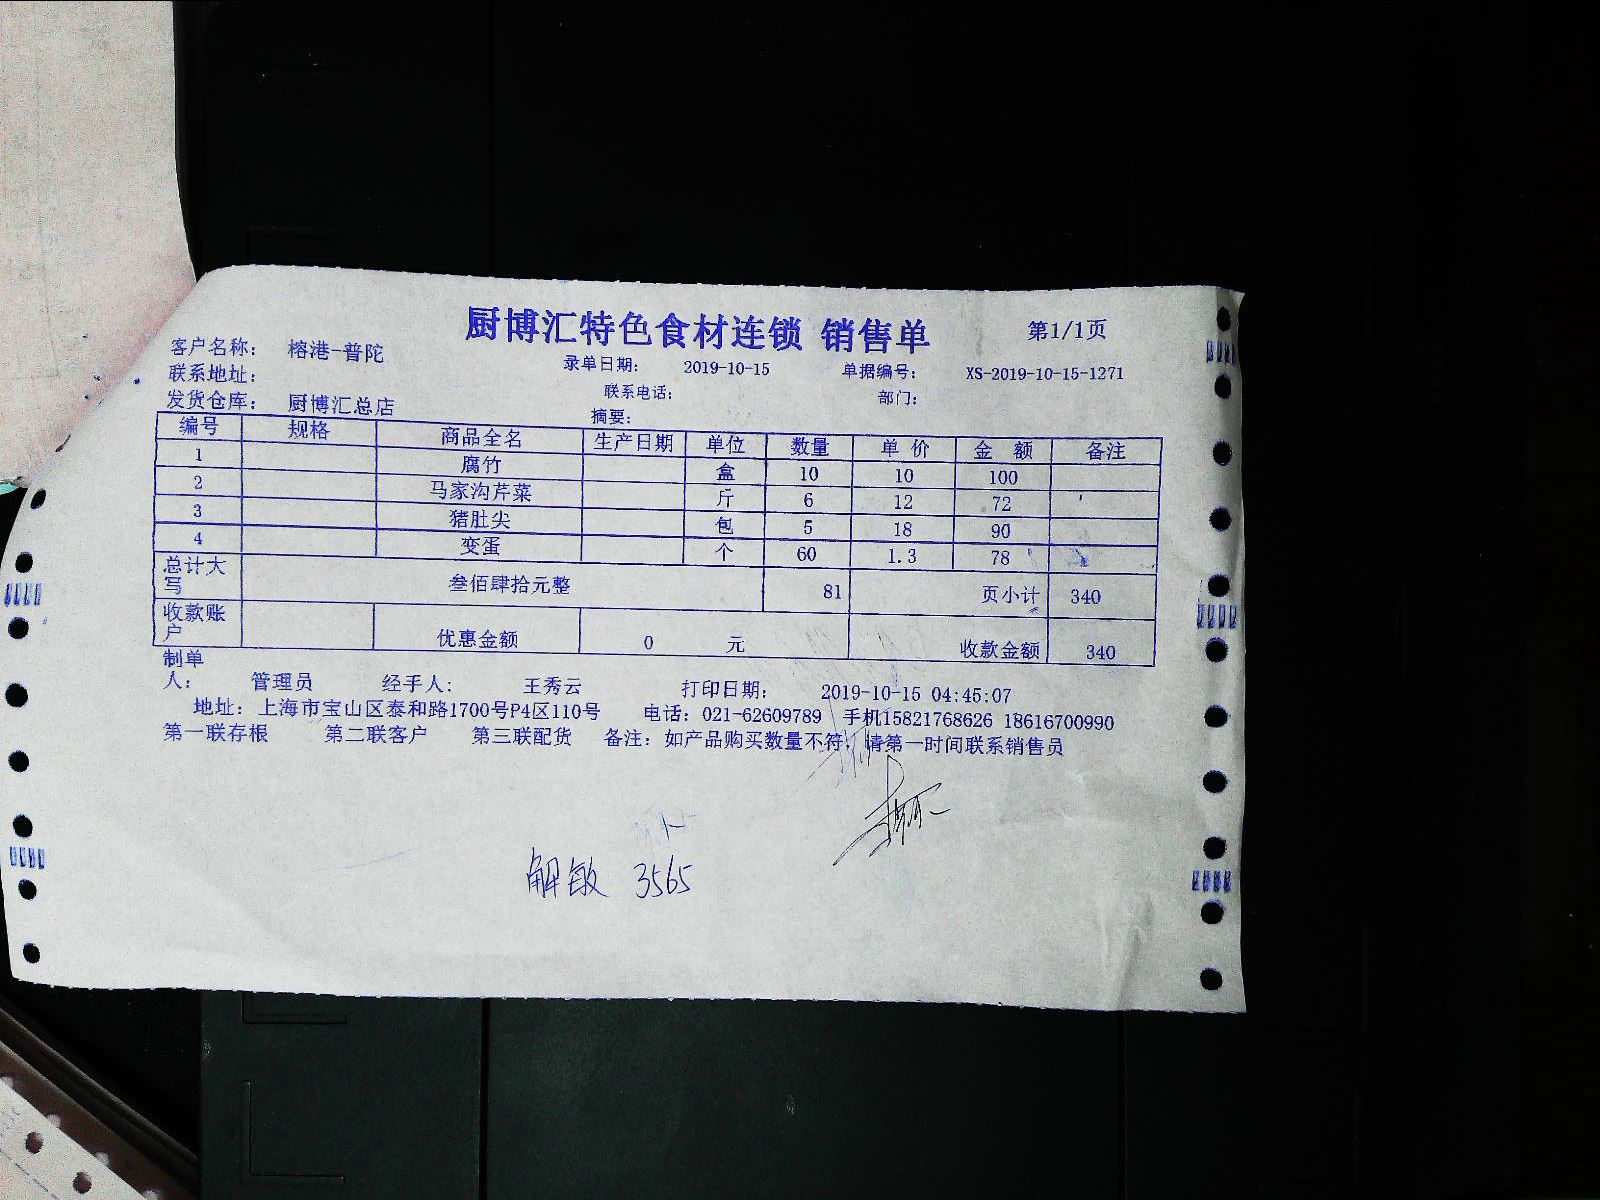 厨博汇特色食材连锁 销售单 第1/1页
客户名称： 榕港-普陀 录单日期： 2019-10-15 单据编号： XS-2019-10-15-1271
联系地址： 联系电话： 部门：
发货仓库： 厨博汇总店 摘要：
编号 规格 商品全名 生产日期 单位 数量 单 价 金 额 备注
1 腐竹 盒 10 10 100
2 马家沟芹菜 斤 6 12 72
3 猪肚尖 包 5 18 90
4 变蛋 个 60 1.3 78
总计大写 叁佰肆拾元整 81 页小计 340
收款账户 优惠金额 0 元 收款金额 340
制单人： 管理员 经手人： 王秀云 打印日期： 2019-10-15 04:45:07
地址：上海市宝山区泰和路1700号P4区110号 电话：021-62609789 手机15821768626 18616700990
第一联存根 第二联客户 第三联配货 备注：如产品购买数量不符，请第一时间联系销售员
解敏 3565